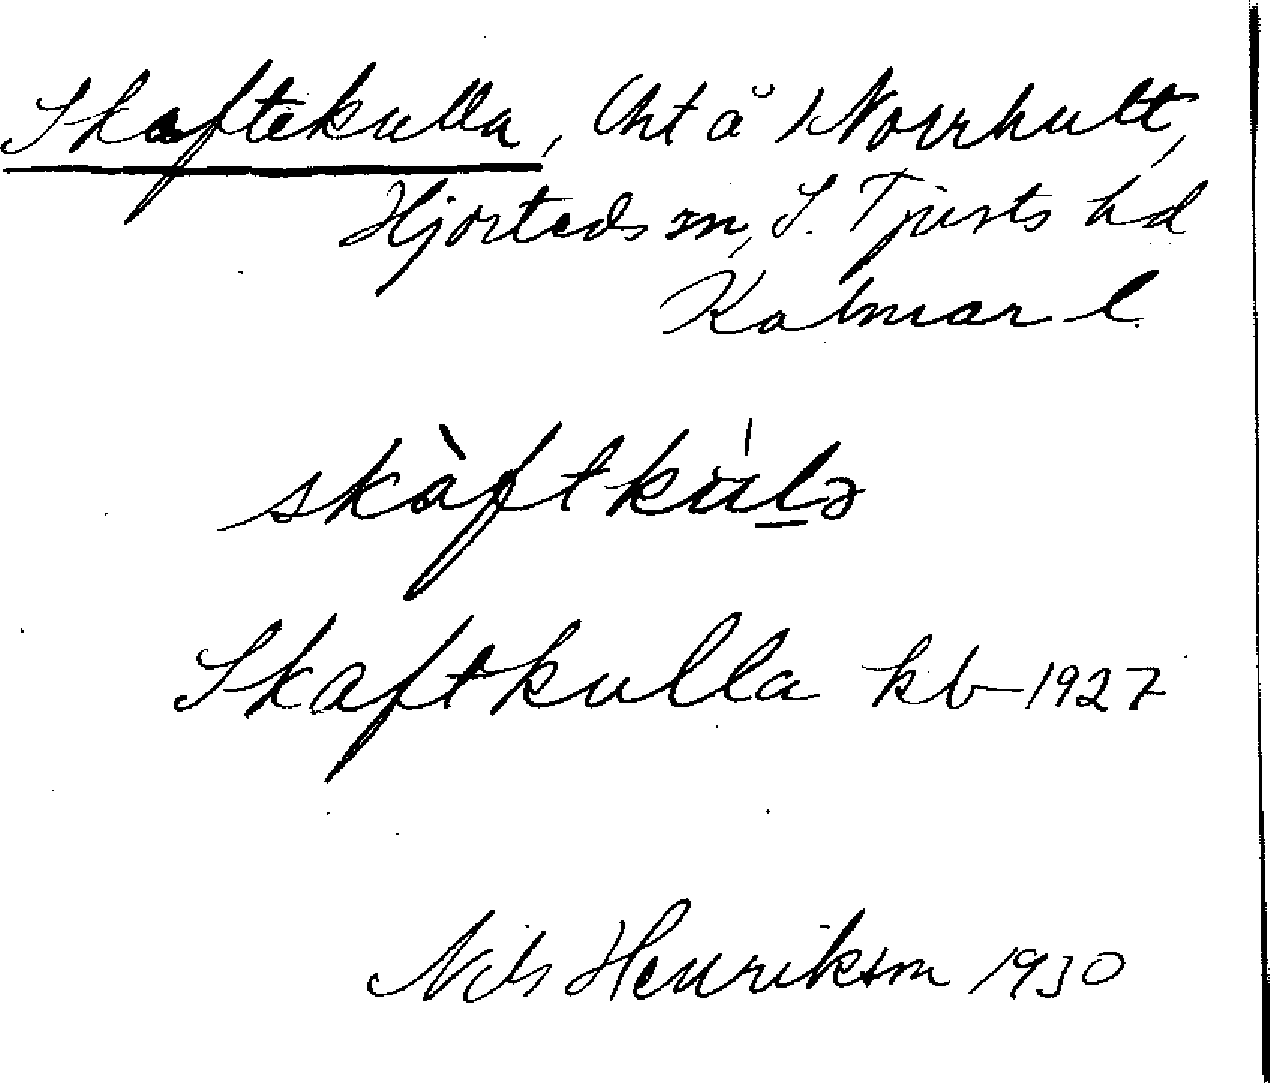 Skaftekulla, lht å Norrhult,
Hjorteds sn, S. Tjusts hd
Kalmar l.
skàftkùlə
Skaftkulla kb 1927
Nils Henrikson 1930